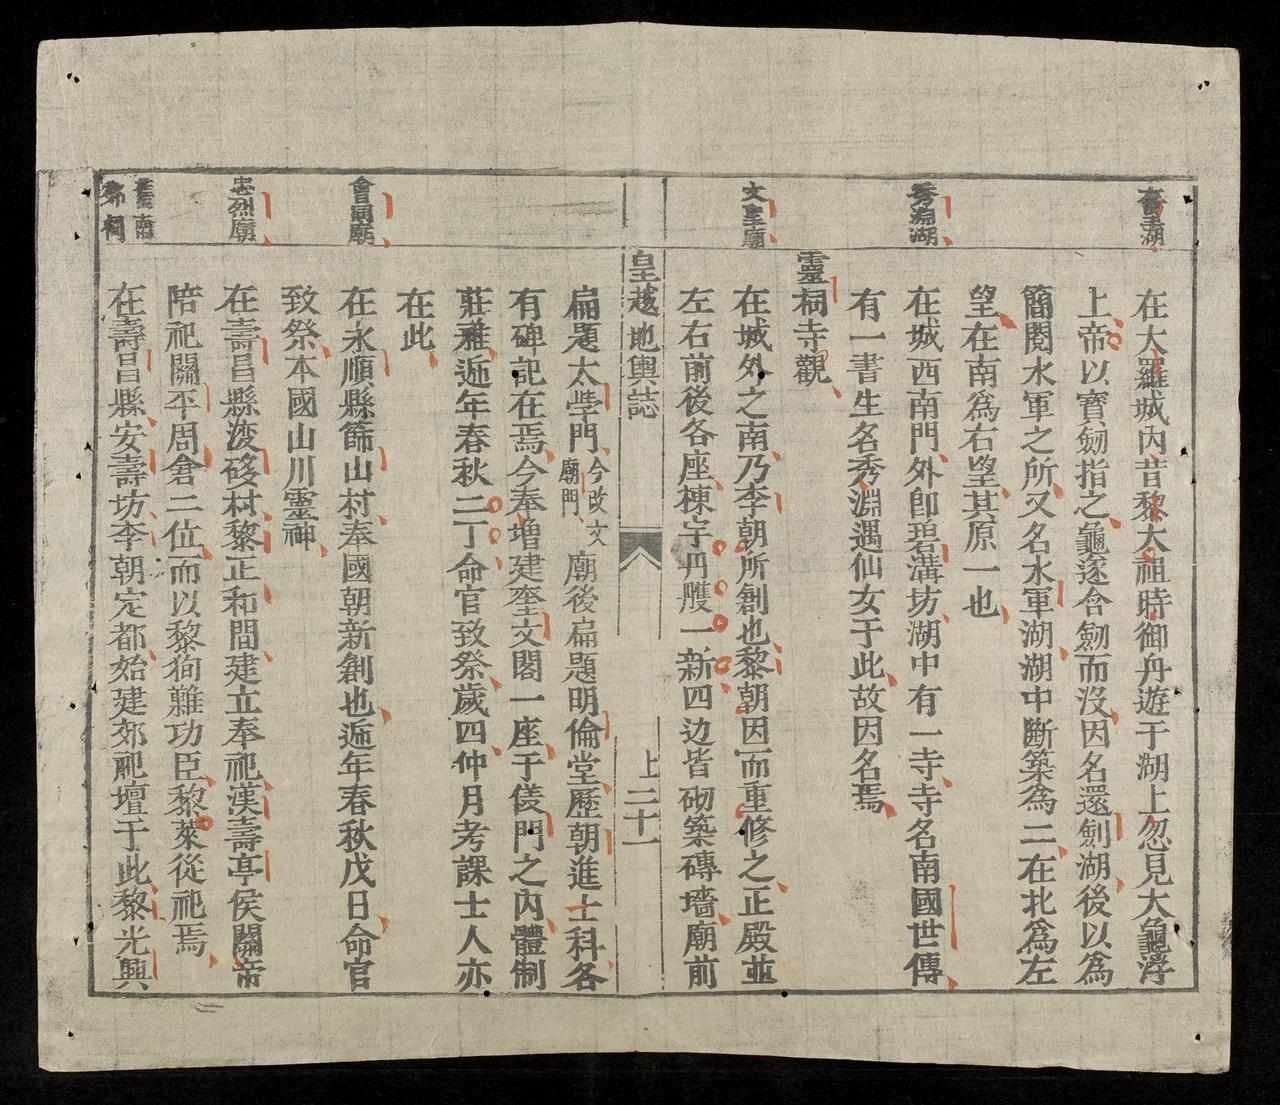 在大羅城內昔黎大祖時御舟遊于湖上忽見大龜浮
上帝以寶劒指之龜遂含劒而沒因名還劍湖後以為
簡閱水軍之所又名水軍湖湖中斷築為二在北為左
望在南為右望其原一也
秀淵湖
在城西南門外卽碧溝坊湖中有一寺寺名南國世傳
有一書生名秀淵遇仙女于此故因名焉
靈祠寺觀
文聖廟
在城外之南乃李朝所創也黎朝因而重修之正殿並
左右前後各座棟宇丹雘一新四边皆砌築磚墻廟前
皇越地輿誌 上 二十一
扁題太學門今改文廟門廟後扁題明倫堂歷朝進士科各
有碑記在焉今奉增建奎文閣一座于儀門之內體制
莊雅逓年春秋二丁命官致祭歲四仲月考課士人亦
在此
會同廟
在永順縣篩山村奉國朝新創也逓年春秋戊日命官
致祭本國山川靈神
忠烈廟
在壽昌縣渡村黎正和間建立奉祀漢壽亭侯關帝
陪祀關平周倉二位而以黎徇難功臣黎萊從祀焉
南郊祠
在壽昌縣安壽坊李朝定都始建郊祀壇于此黎光興